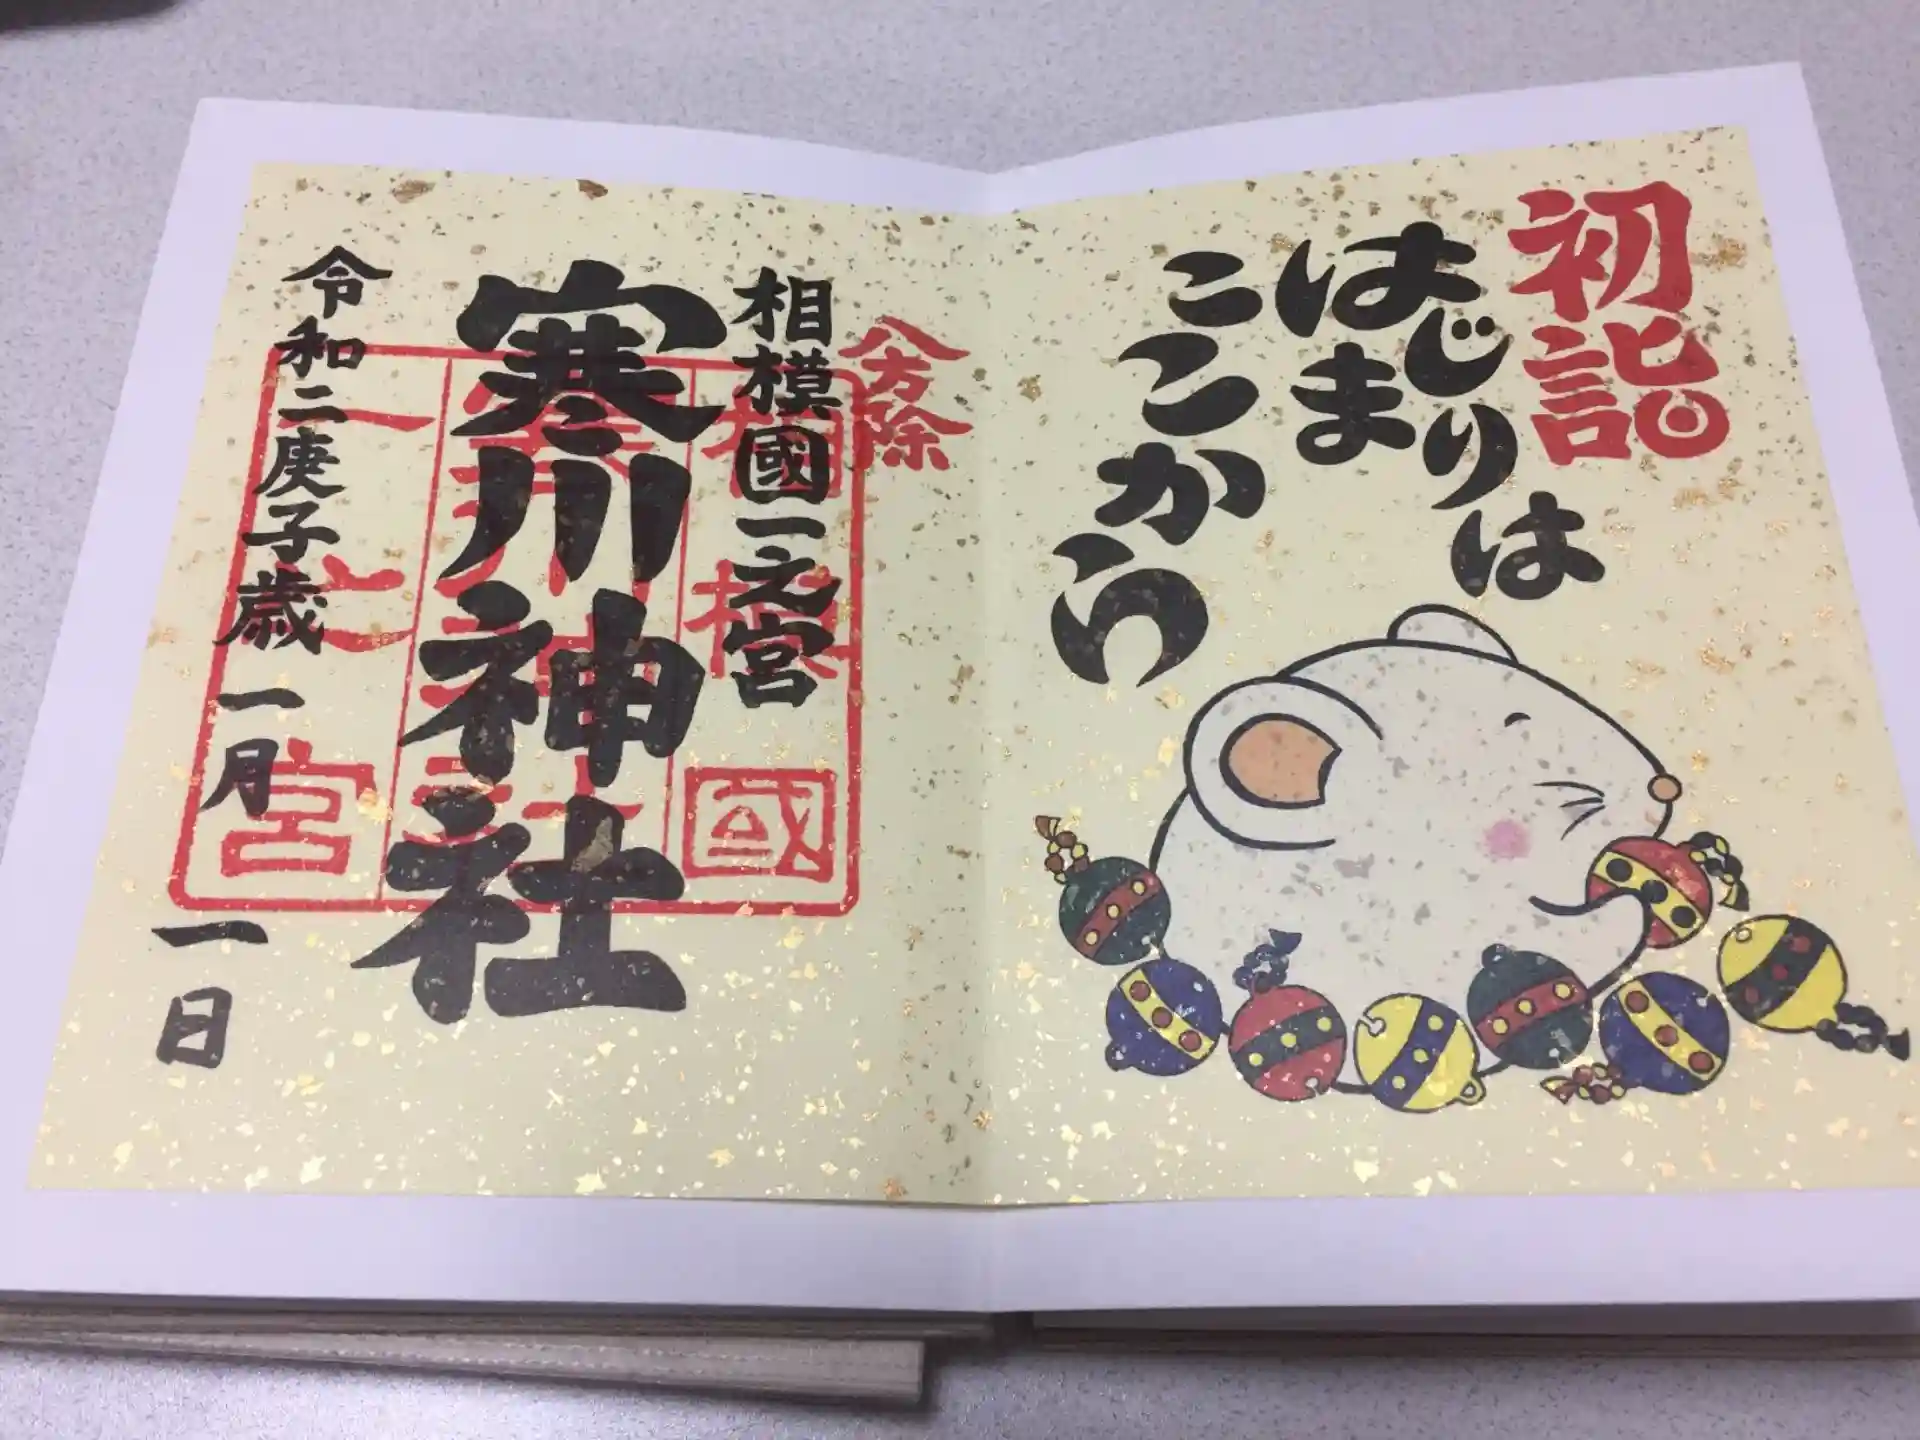 初詣
はじまりは
ここから
八方除
相模國一之宮
寒川神社
令和二庚子歳 一月 一日
相模國
寒川神社
一之宮